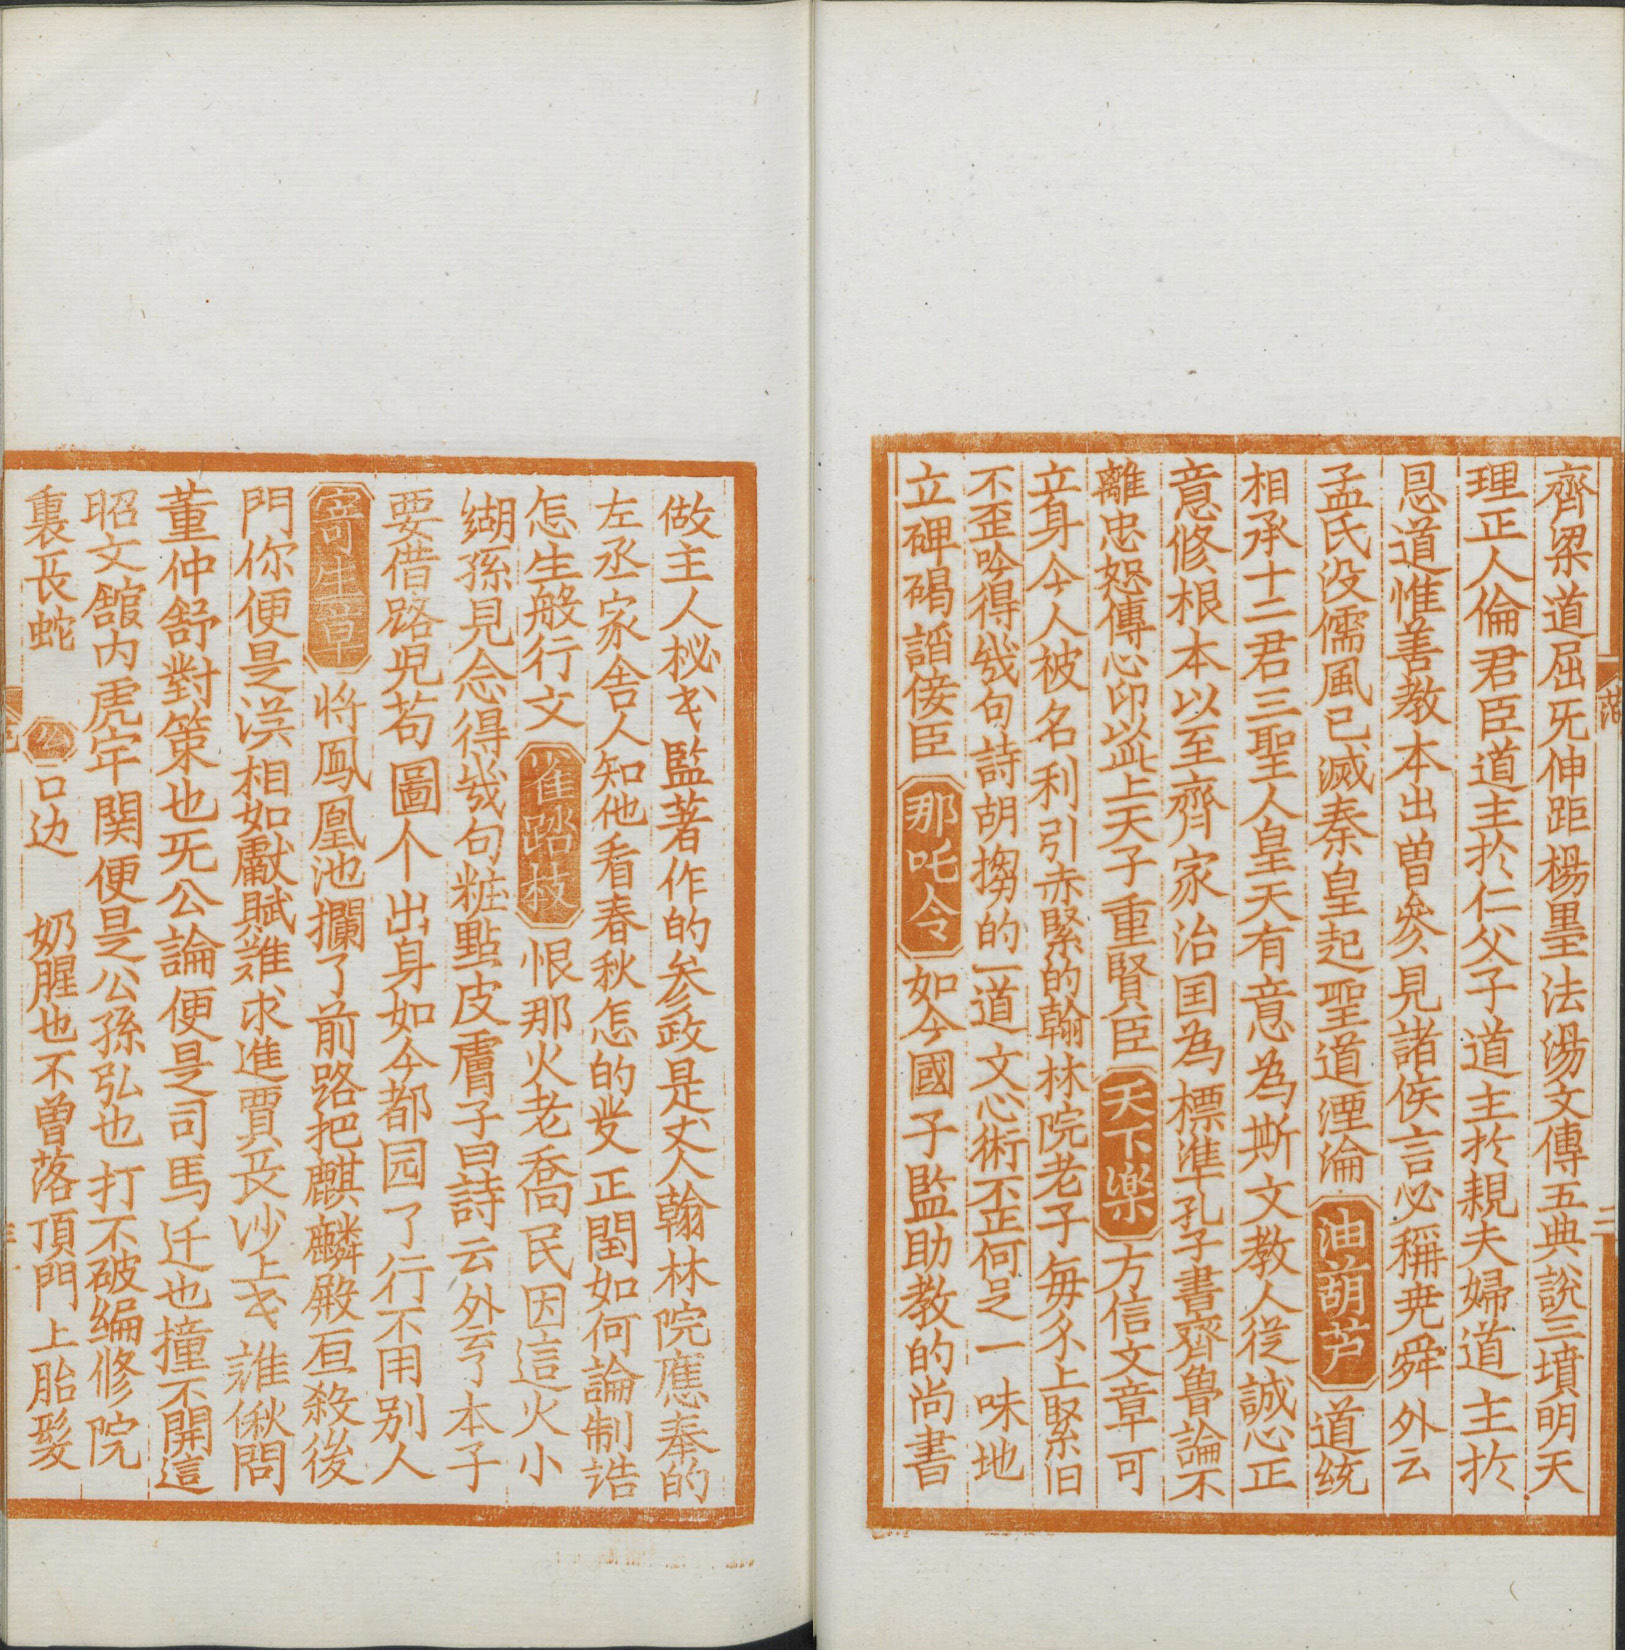 齊梁道屈旡伸距楊墨法湯文傳五典說三墳明天
理正人倫君臣道主扵仁父子道主扵親夫婦道主扵
恩道惟善教本出曽參見諸侯言必稱尭舜外云
孟氏没儒風已滅秦皇起聖道湮淪油葫芦道统
相承十二君三聖人皇天有意為斯文教人従誠心正
意修根本以至齊家治囯為標準孔子書齊魯論不
離忠恕傳心印以此上天子重賢臣天下樂方信文章可
立身今人被名利引赤緊的翰林院老子每尒上緊旧
不歪吟得㡬句詩胡搊的一道文心術不正何𠯁一味地
立碑碣謟佞臣那吒令如今國子監助教的尚書
做主人秘书監著作的参政是丈人翰林院應奉的
左丞家舎人知他看春秋怎的发正閏如何論制誥
怎生般行文雀踏枝恨那火老喬民因這火小
猢孫見念得㡬句粧點皮膚子曰詩云外亐本子
要借路児苟圖个出身如今都园了行不用别人
寄生草將鳳凰池攔了前路把麒麟殿亙殺後
門你便是汉相如獻賦难求進賈長沙上书誰偢問
董仲舒對策也旡公論便是司馬迁也撞不開這
昭文舘内虎牢関便是公孫弘也打不破編修院
裏長蛇 么 口边 奶腥也不曽落頂門上胎髮